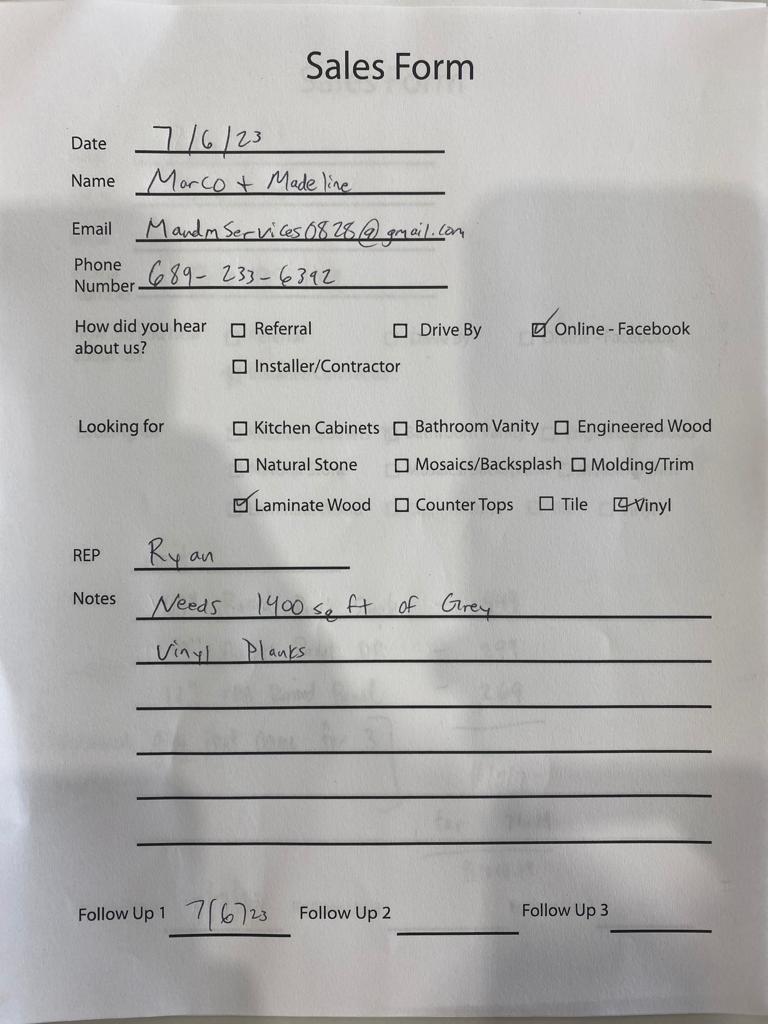 Sales Form
Date 7/6/23
Name Marco + Madeline
Email MandmServices0828@gmail.com
Phone Number 689-233-6392
How did you hear about us? ☐ Referral ☐ Drive By ☑ Online - Facebook
☐ Installer/Contractor
Looking for ☐ Kitchen Cabinets ☐ Bathroom Vanity ☐ Engineered Wood
☐ Natural Stone ☐ Mosaics/Backsplash ☐ Molding/Trim
☑ Laminate Wood ☐ Counter Tops ☐ Tile ☑ Vinyl
REP Ryan
Notes Needs 1400 sq ft of Grey
Vinyl Planks
Follow Up 1 7/6/23 Follow Up 2 Follow Up 3